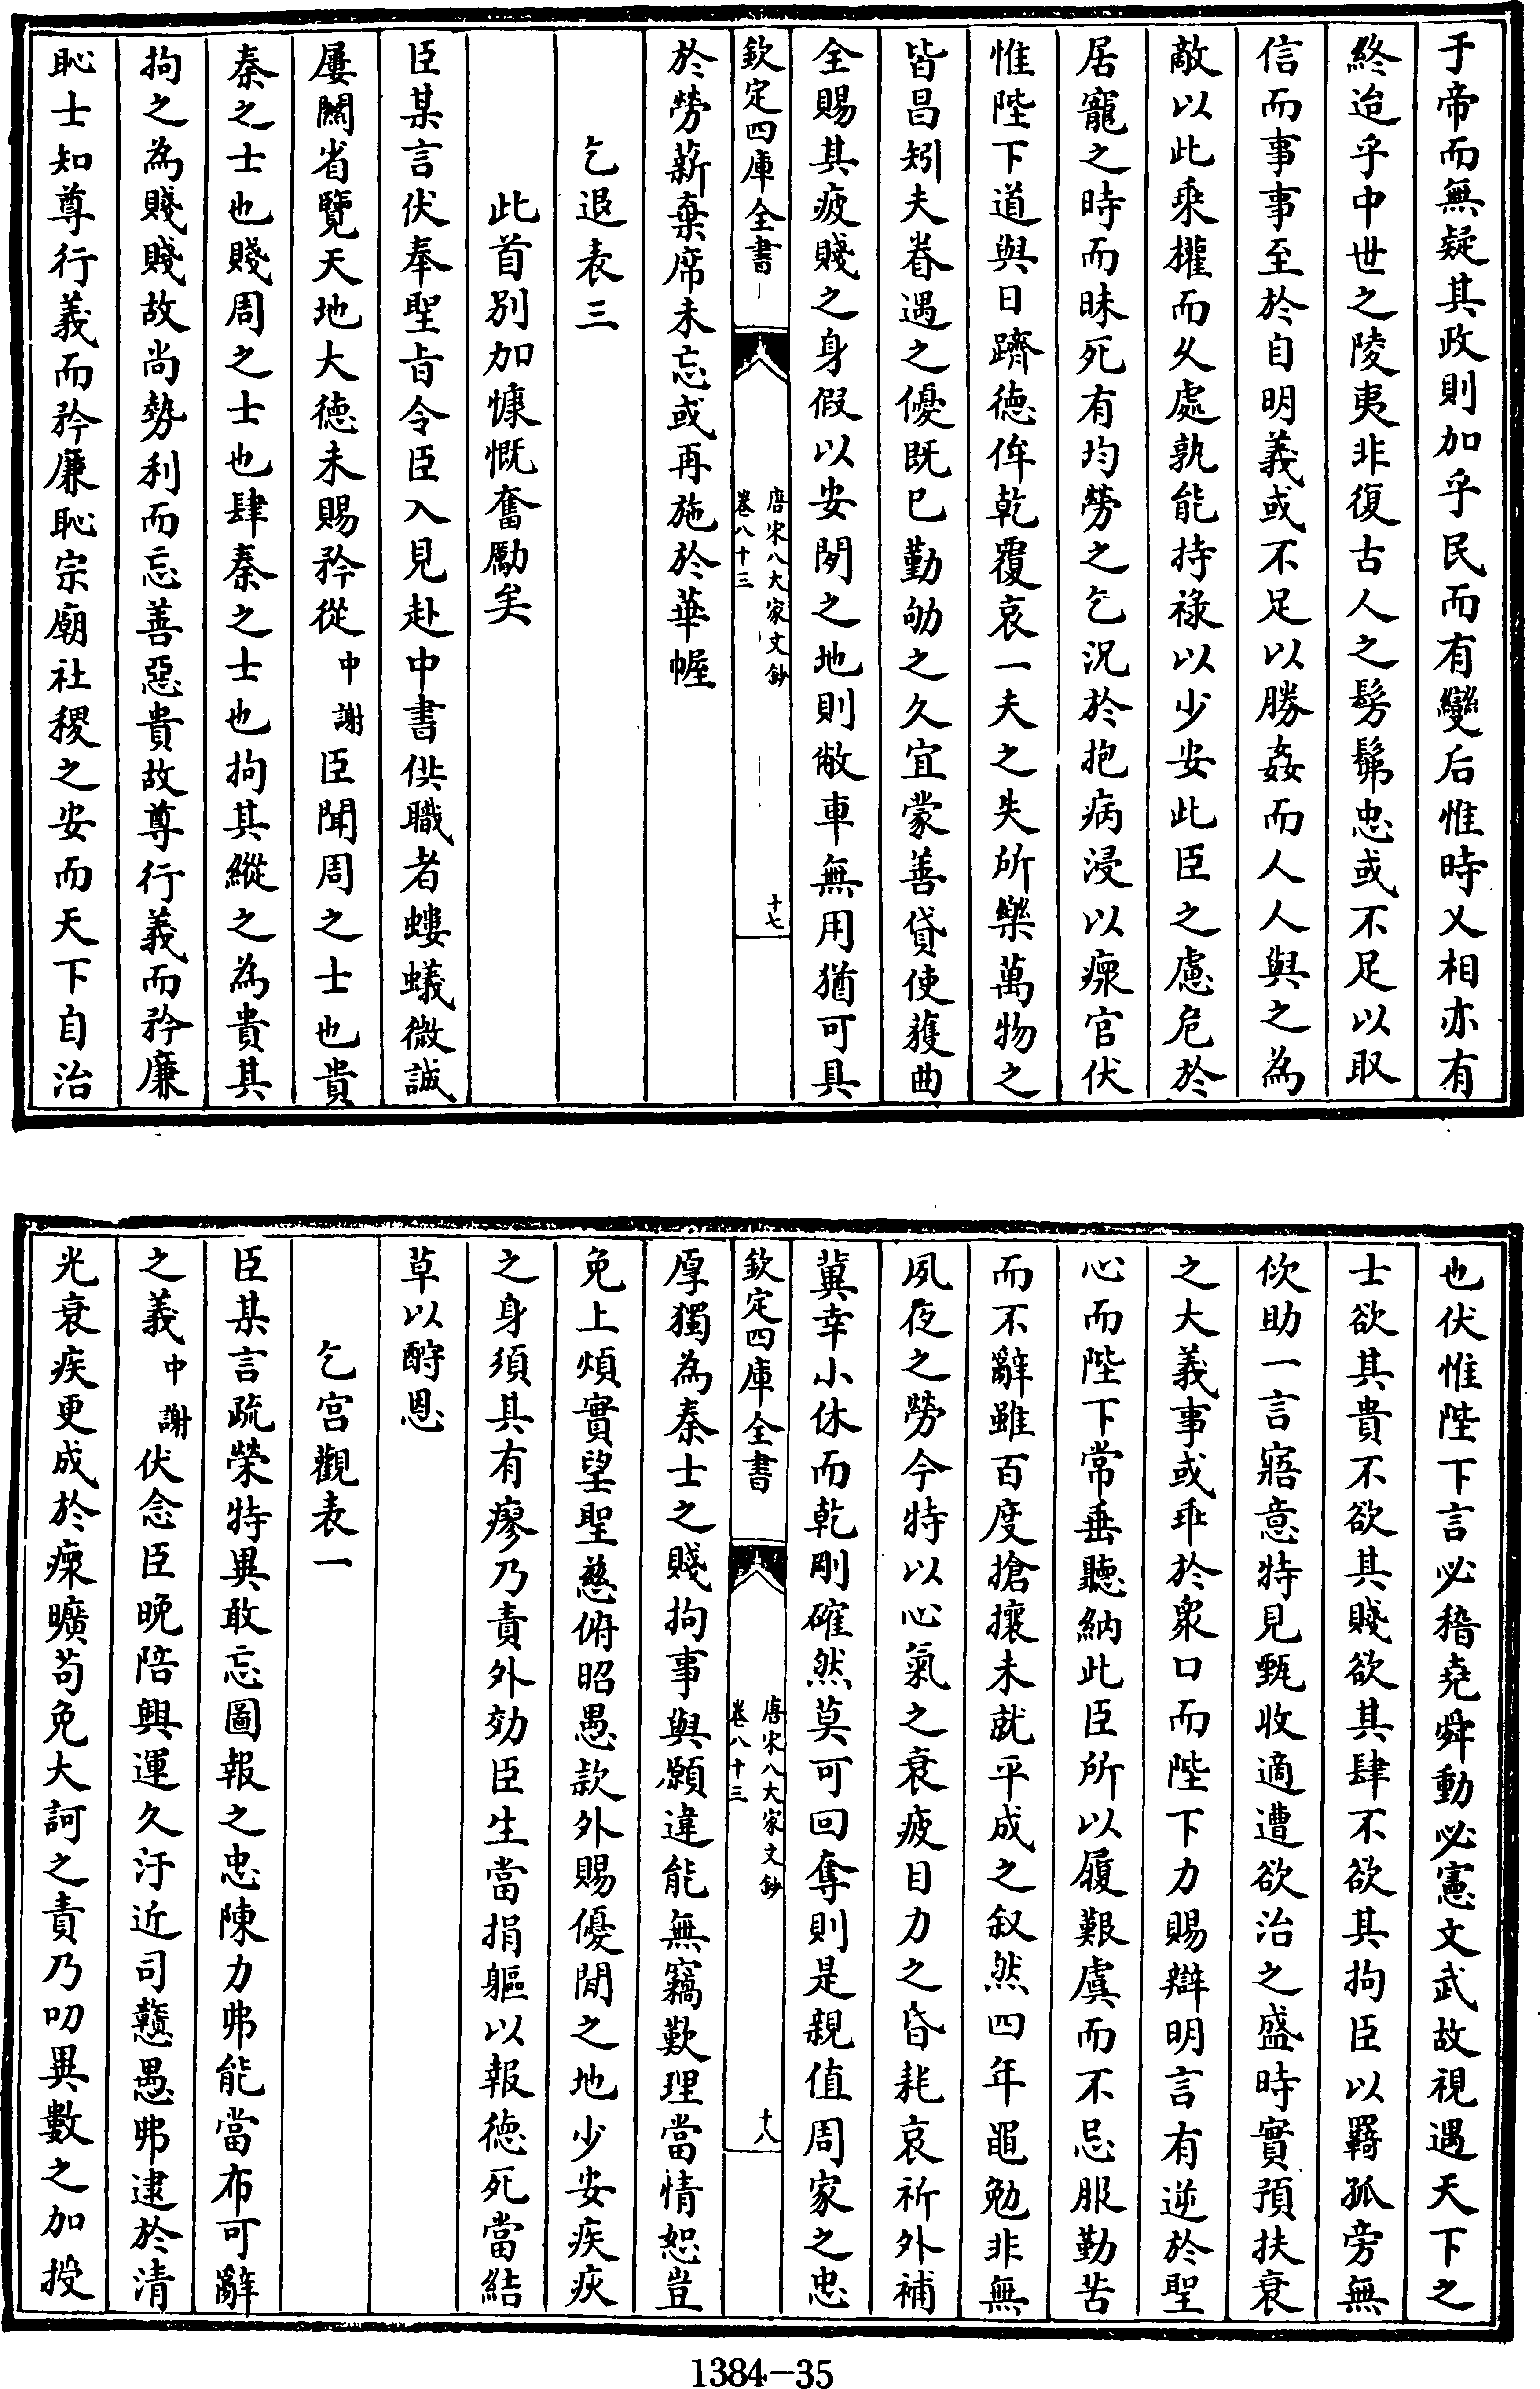 于帝而無疑其政則加乎民而有變后惟時乂相亦有
終迨乎中世之陵夷非復古人之髣髴忠或不足以取
信而事事至於自明義或不足以勝姦而人人與之為
敵以此乗權而久處孰能持祿以少安此臣之慮危於
居寵之時而昧死有均勞之乞況於抱病浸以瘝官伏
惟陛下道與日躋徳侔乾覆哀一夫之失所樂萬物之
皆昌矧夫眷遇之優既已勤劬之久宜蒙善貸使獲曲
全賜其疲賤之身假以安閒之地則敝車無用猶可具
欽定四庫全書
唐宋八大家文鈔
卷八十三
十七
於勞薪棄席未忘或再施於華幄
乞退表三
此首別加慷慨奮勵矣
臣某言伏奉聖旨令臣入見赴中書供職者螻蟻微誠
屢關省覽天地大徳未賜矜從中謝臣聞周之士也貴
秦之士也賤周之士也肆秦之士也拘其縱之為貴其
拘之為賤賤故尚勢利而忘善惡貴故尊行義而矜廉
恥士知尊行義而矜廉恥宗廟社稷之安而天下自治
也伏惟陛下言必稽堯舜動必憲文武故視遇天下之
士欲其貴不欲其賤欲其肆不欲其拘臣以羇孤旁無
佽助一言寤意特見甄收適遭欲治之盛時實預扶衰
之大義事或乖於衆口而陛下力賜辯明言有逆於聖
心而陛下常垂聽納此臣所以履艱虞而不忌服勤苦
而不辭雖百度搶攘未就平成之叙然四年黽勉非無
夙夜之勞今特以心氣之衰疲目力之昏耗哀祈外補
冀幸小休而乾剛確然莫可回奪則是親值周家之忠
欽定四庫全書
唐宋八大家文鈔
卷八十三
十八
厚獨為秦士之賤拘事與願違能無竊歎理當情恕豈
免上煩實望聖慈俯昭愚款外賜優閒之地少安疾疢
之身須其有瘳乃責外効臣生當捐軀以報徳死當結
草以酧恩
乞宮觀表一
臣某言疏榮特異敢忘圖報之忠陳力弗能當布可辭
之義中謝伏念臣晚陪興運久汙近司戇愚弗逮於清
光衰疾更成於瘝曠苟免大訶之責乃叨異數之加授
1384-35